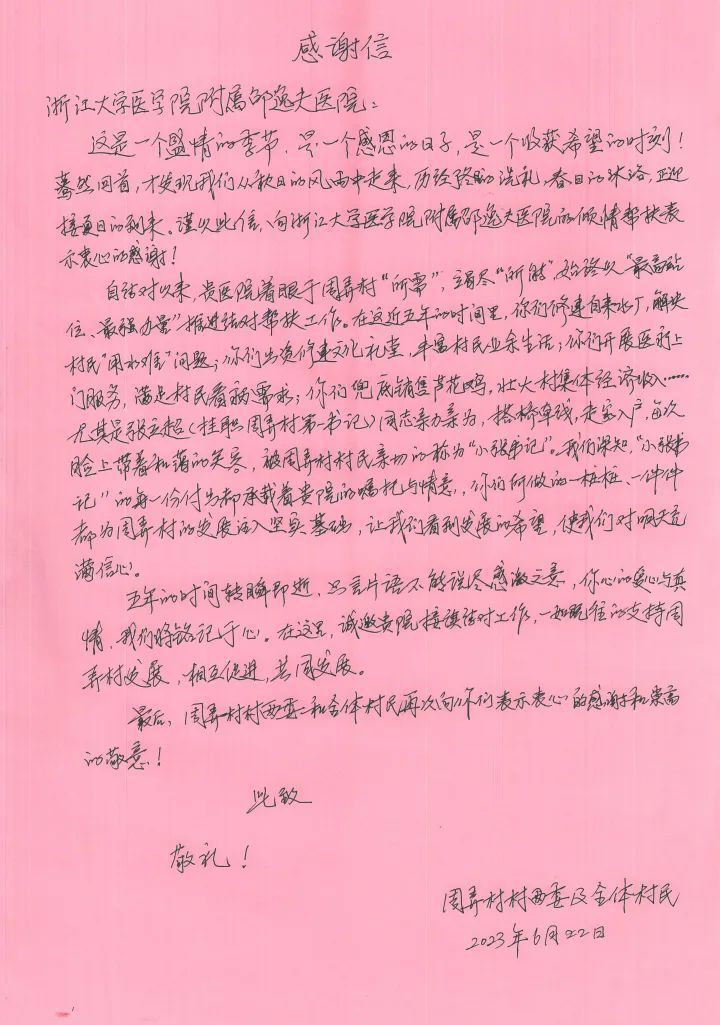 感谢信
浙江大学医学院附属邵逸夫医院：
这是一个盛情的季节，是一个感恩的日子，是一个收获希望的时刻！
蓦然回首，才发现我们从秋日的风雨中走来，历经隆冬的洗礼，春日的沐浴，正迎
接夏日的到来。谨以此信，向浙江大学医学院附属邵逸夫医院的倾情帮扶表
示衷心的感谢！
自结对以来，贵医院着眼于周弄村“所需”，竭尽“所能”，始终以“最高站
位、最强力量”推进结对帮扶工作。在这近五年的时间里，你们修建自来水厂，解决
村民“用水难”问题；你们出资修建文化礼堂，丰富村民业余生活；你们开展医疗上
门服务，满足村民看病需求；你们兜底销售芦花鸡，壮大村集体经济收入……
尤其是张立超（挂职周弄村第一书记）同志亲力亲为，搭桥牵线，走家入户，每次
脸上带着和蔼的笑容，被周弄村村民亲切的称为“小张书记”。我们深知，“小张书
记”的每一份付出都承载着贵院的嘱托与情意，你们所做的一桩桩、一件件
都为周弄村的发展注入坚实基础，让我们看到发展的希望，使我们对明天充
满信心。
五年的时间转瞬即逝，只言片语不能诠尽感激之意，你们的爱心与真
情，我们将铭记于心。在这里，诚邀贵院接续结对工作，一如既往的支持周
弄村发展，相互促进，共同发展。
最后，周弄村村两委和全体村民再次向你们表示衷心的感谢和崇高
的敬意！
此致
敬礼！
周弄村村两委及全体村民
2023年6月22日